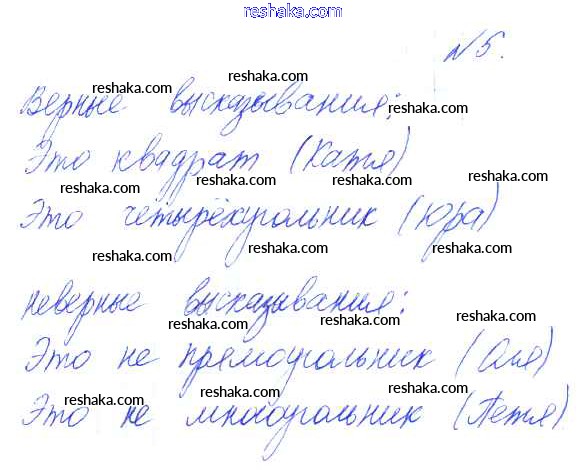 reshaka.com
№5.
reshaka.com
reshaka.com
Верные высказывания:
reshaka.com
reshaka.com
reshaka.com
Это квадрат (Катя)
reshaka.com reshaka.com reshaka.com reshaka.com
Это четырёхугольник (Юра)
reshaka.com reshaka.com reshaka.com
неверные высказывания:
reshaka.com reshaka.com reshaka.com
Это не прямоугольник (Оля)
reshaka.com reshaka.com reshaka.com
Это не многоугольник (Петя)
reshaka.com reshaka.com